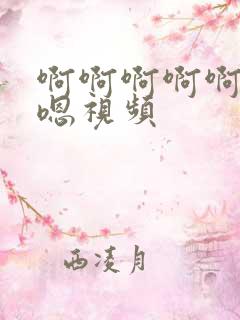 啊啊啊啊啊
嗯視頻
西凌月